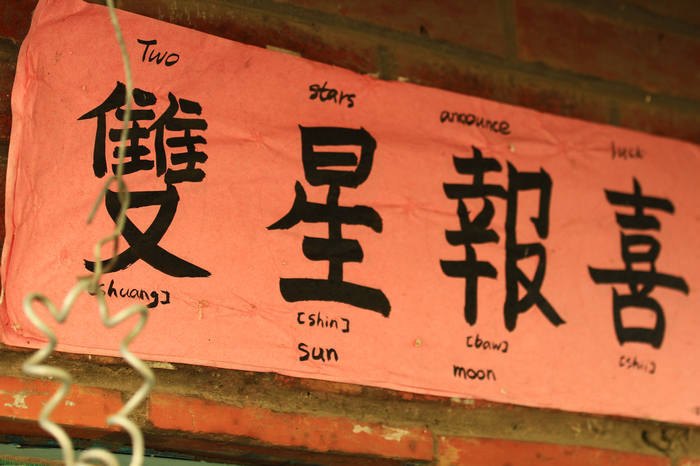 Two stars anounce luck
雙星報喜
[shuang] [shin] [baw] [shii]
sun moon